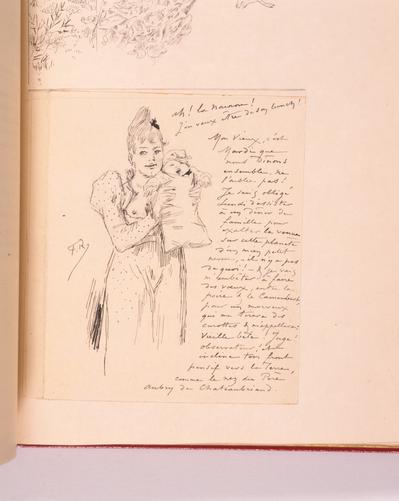 Ah! la nounou!
J'en veux être de son lunch!
Mon Vieux, c'est
Mardi que
nous dînons
ensemble, ne
l'oublie pas!
Je suis obligé
Lundi d'assister
à un dîner de
famille pour
exalter la venue
sur cette planète
d'un mien petit
neveu, il n'y a pas
de quoi! Et je vais
m'embêter à faire
des vœux, entre la
poire & le Camembert,
pour un morveux
qui me tirera des
carottes & m'appellera:
Vieille bête! Juge!
observateur! &
incline ton front
pensif vers la Terre,
comme le nez du Père
Aubry de Chateaubriand.
F.R.